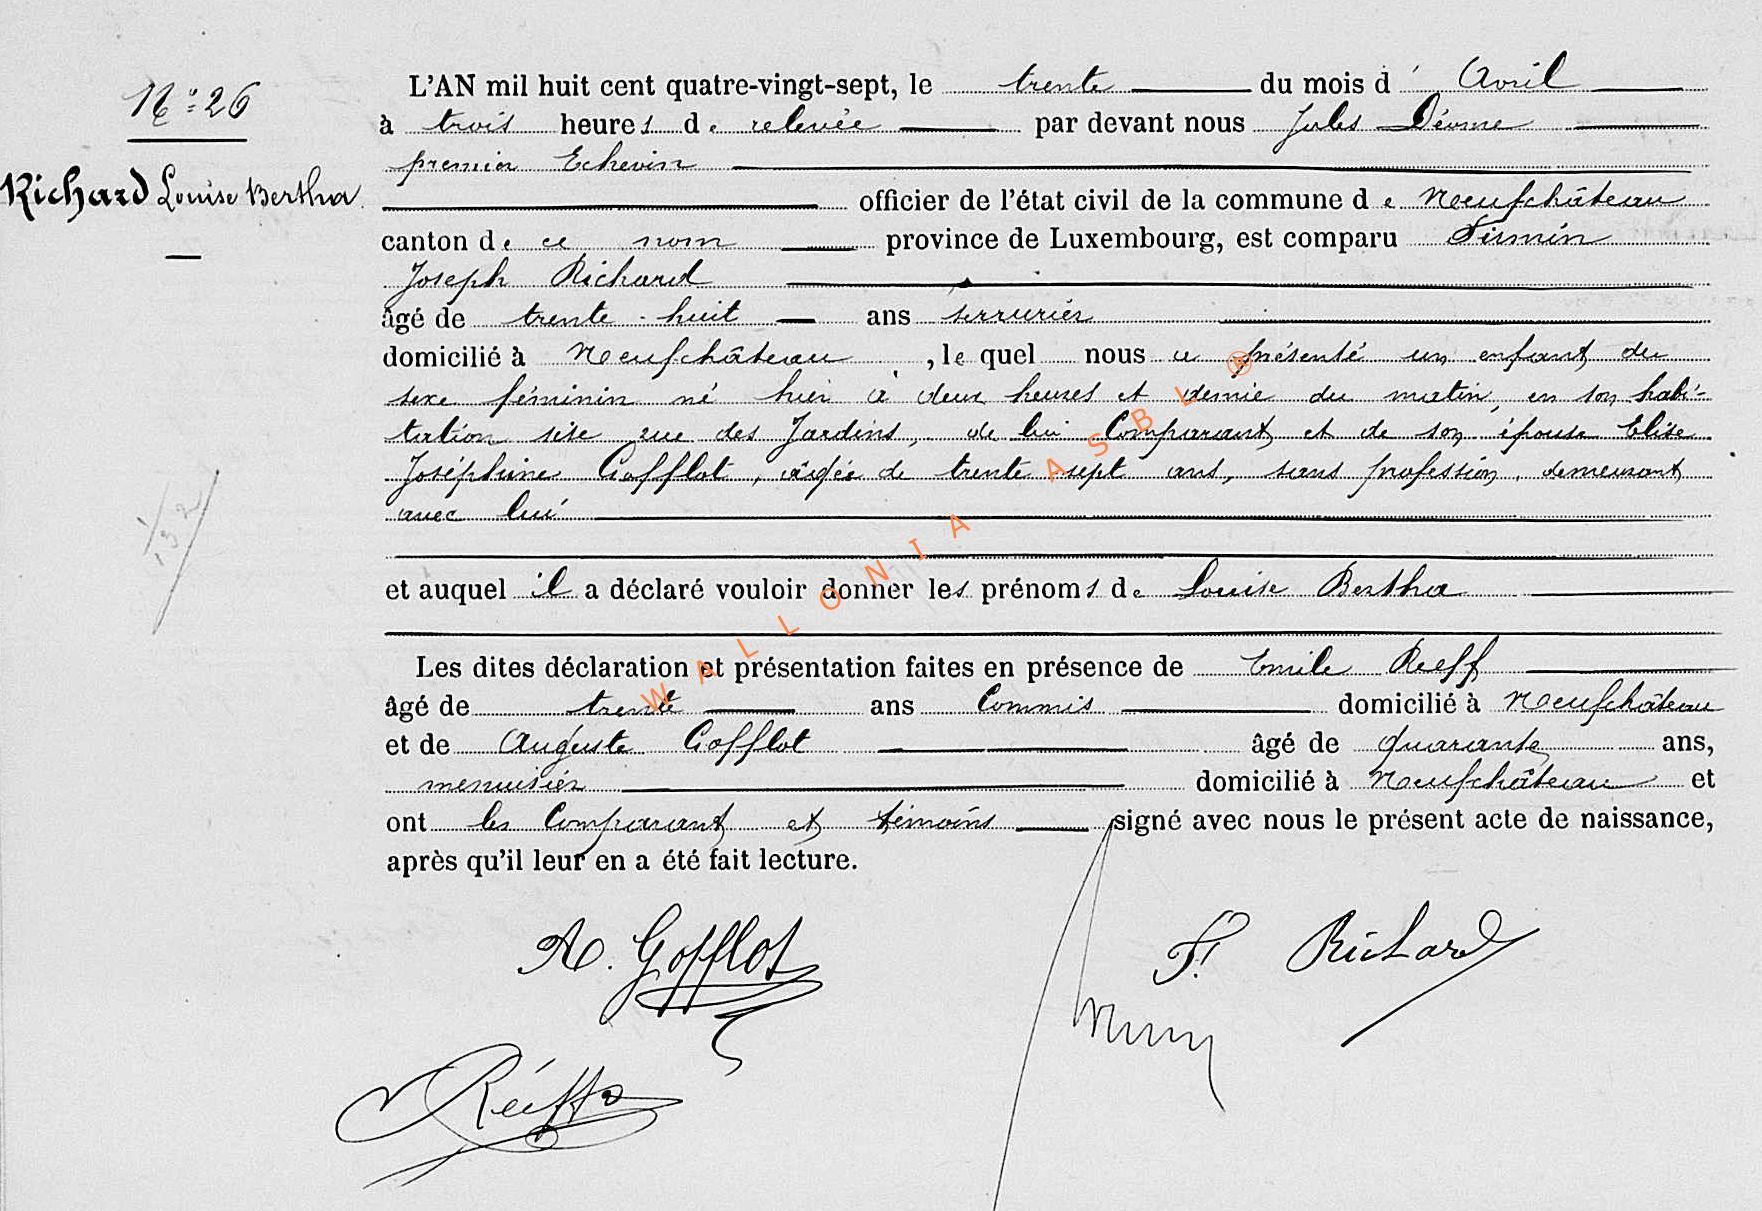 N° 26
Richard Louise Bertha.
L'AN mil huit cent quatre-vingt-sept, le trente du mois d' Avril
à trois heures de relevée par devant nous Jules Déome
premier Echevin
officier de l'état civil de la commune de Neufchâteau
canton de ce nom province de Luxembourg, est comparu Firmin
Joseph Richard
âgé de trente-huit ans serrurier
domicilié à Neufchâteau, lequel nous a présenté un enfant du
sexe féminin né hier à deux heures et demie du matin, en son habi-
tation sise rue des Jardins, de lui Comparant et de son épouse Elise
Joséphine Gofflot, âgée de trente sept ans, sans profession, demeurant
avec lui
et auquel il a déclaré vouloir donner les prénoms de Louise Bertha
Les dites déclaration et présentation faites en présence de Emile Reiff
âgé de trente ans Commis domicilié à Neufchâteau
et de Auguste Gofflot âgé de quarante ans,
menuisier domicilié à Neufchâteau et
ont les Comparant et témoins signé avec nous le présent acte de naissance,
après qu'il leur en a été fait lecture.
A. Gofflot
F. Richard
Réiff
WALLONIA ASBL ®